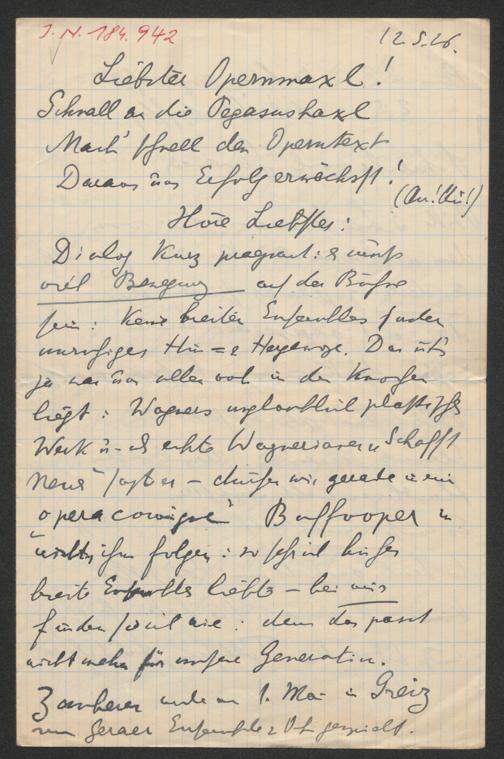 J. N. 184.942
12.5.26.
Liebster Opernmaxl!
Schnall an die Pegasushaxl
Mach' schnell den Operntext
Daraus uns Erfolg erwächst!
(Au! Au!)
Höre Liebster:
Dialog kurz praegnant: es muss
viel Bewegung auf der Bühne
sein: keine breiten Ensembles sondern
unruhiges Hin = u Hergewoge. Das ist's
ja was uns allen noch in den Knochen
liegt: Wagners unglaublich plastisches
Werk u. als echte Wagnerianer "Schafft
Neues" sagt er – dürfen wir gerade in ein
opera comique Buffooper in
nichts ihm folgen: so sehr er
breite Ensembles liebte – bei uns
finden sie nie: denn das passt
nicht mehr für unsere Generation.
Zauberer wurde am 1. Mai in Greiz
vom Geraer Ensemble gespielt.